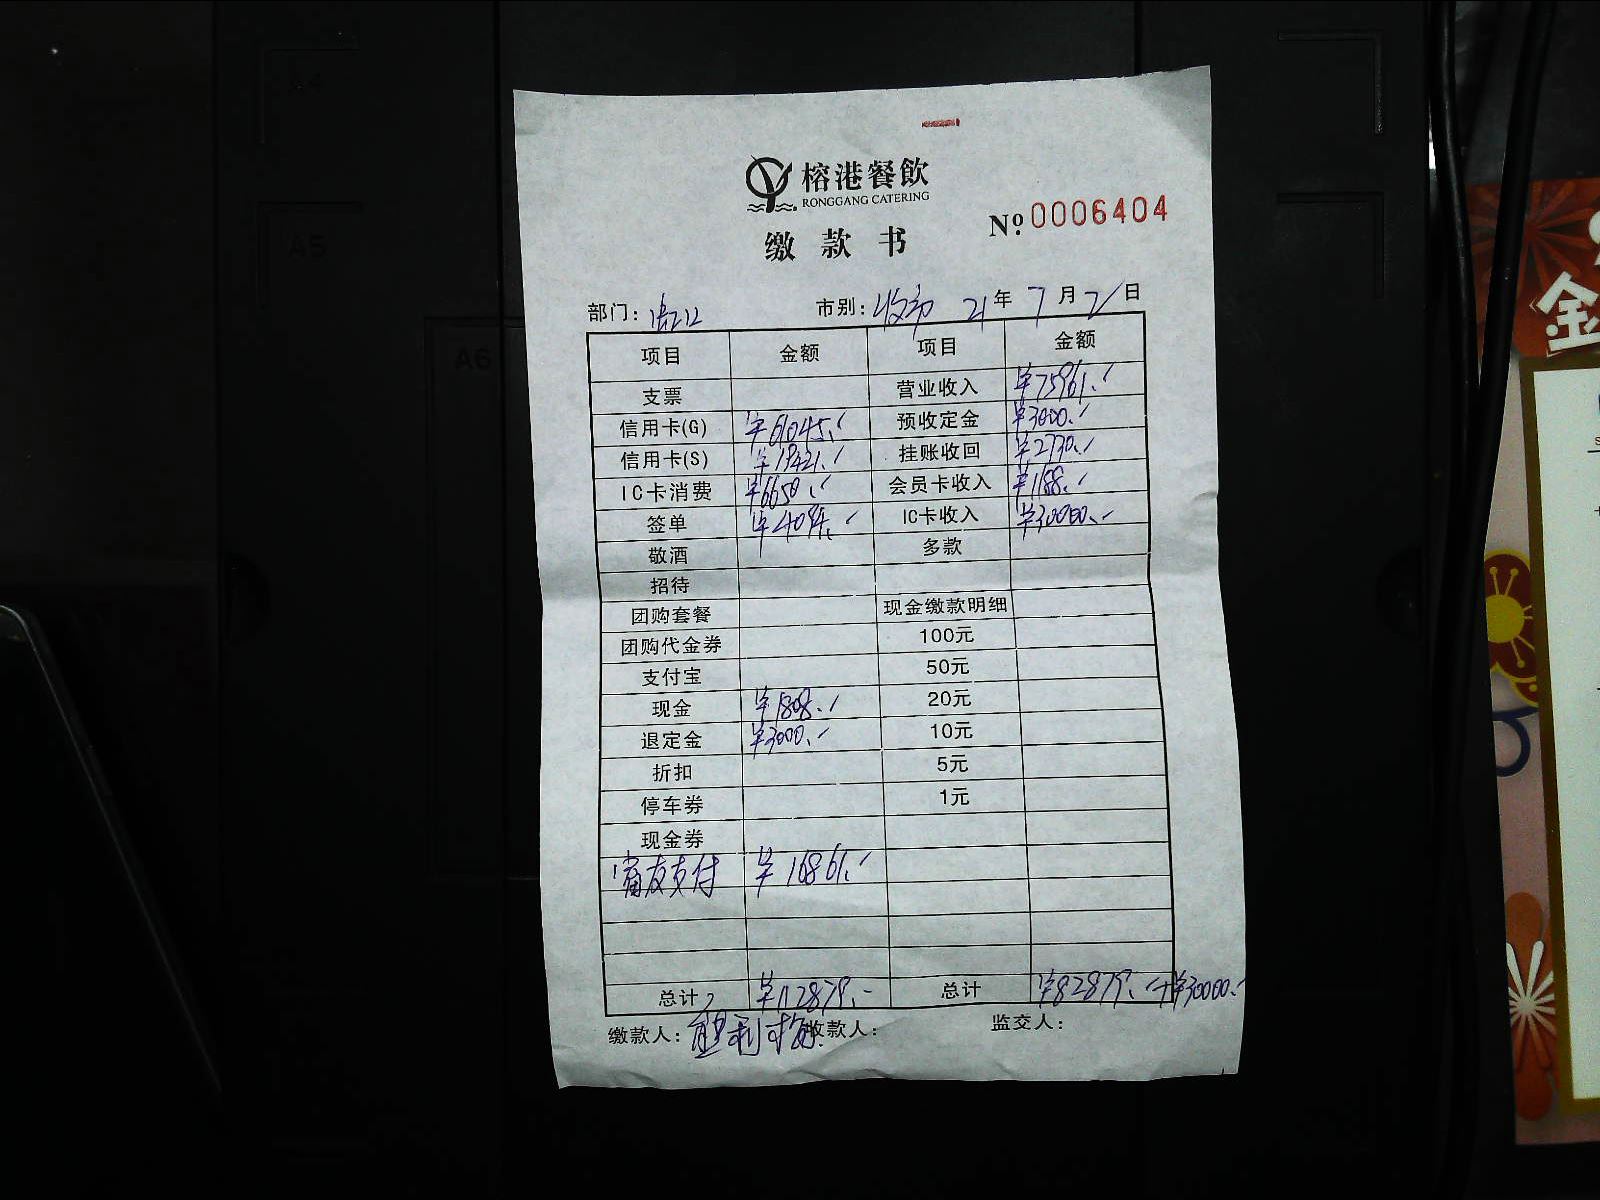 A4
A5
A6
榕港餐飲
RONGGANG CATERING
缴款书
Nº.0006404
部门: 市别: 收市 21年 7月 日
项目 金额 项目 金额
支票 营业收入 ¥75961.-
信用卡(G) ¥61045.- 预收定金 ¥3000.-
信用卡(S) ¥19421.- 挂账收回 ¥2730.-
IC卡消费 ¥6650.- 会员卡收入 ¥1188.-
签单 ¥4094.- IC卡收入 ¥30000.-
敬酒 多款
招待
团购套餐 现金缴款明细
团购代金券 100元
支付宝 50元
现金 ¥1808.- 20元
退定金 ¥3000.- 10元
折扣 5元
停车券 1元
现金券
富友支付 ¥16861.-
总计 ¥112879.- 总计 ¥82879.-+¥30000.-
缴款人: 收款人: 监交人:
金